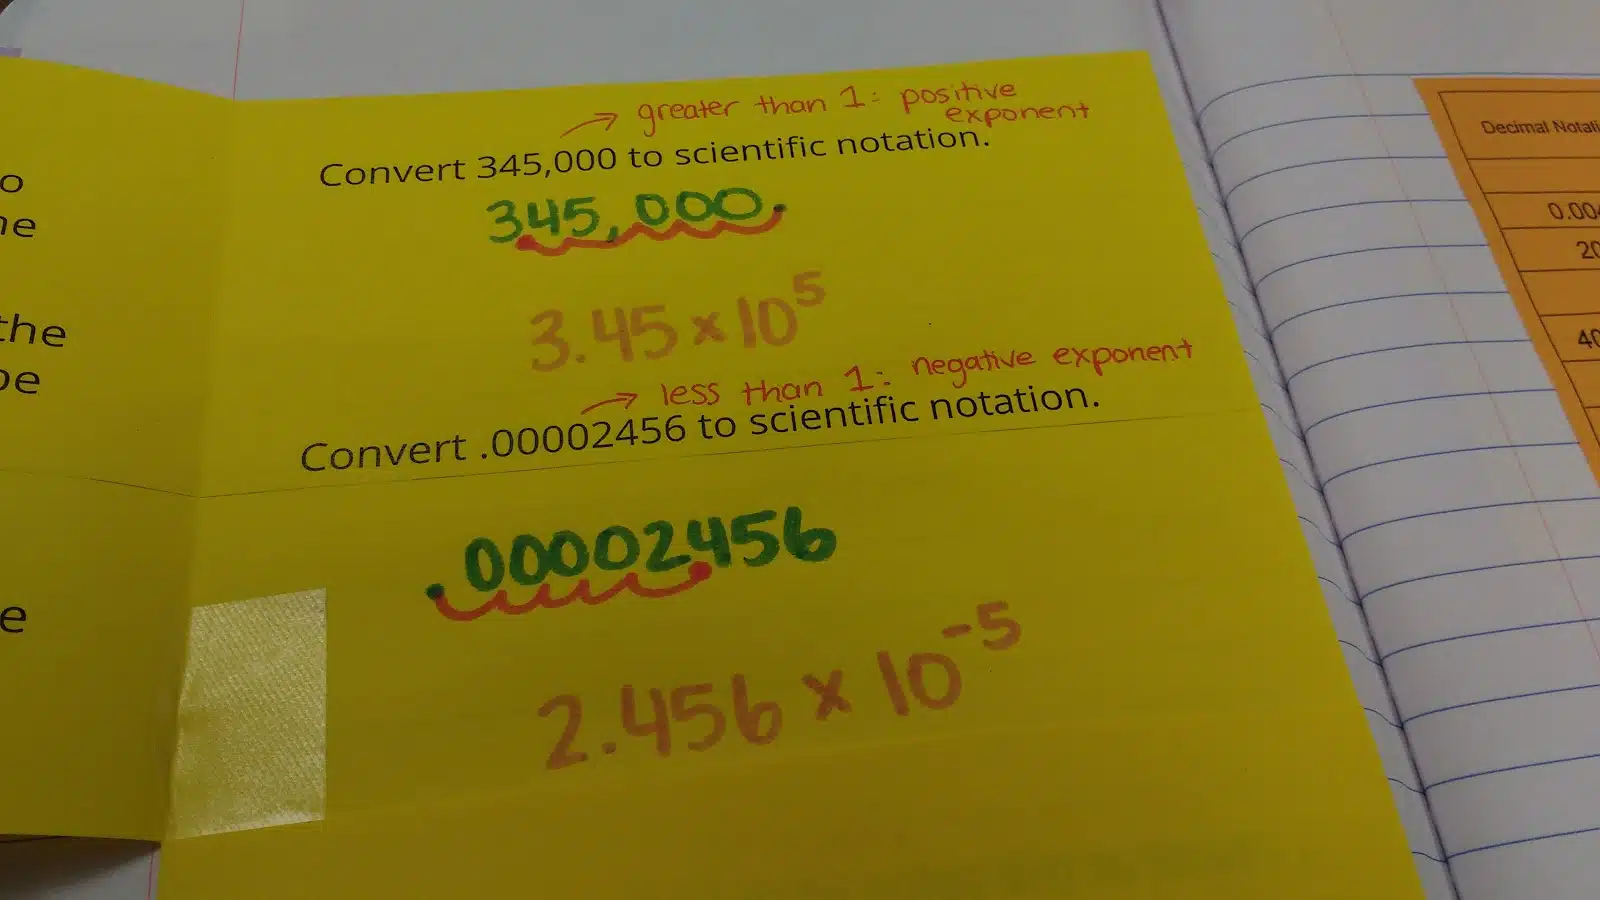 o
he
the
be
e
greater than 1: positive
exponent
Convert 345,000 to scientific notation.
345,000.
3.45 x 10⁵
less than 1: negative exponent
Convert .00002456 to scientific notation.
.00002456
2.456 x 10⁻⁵
Decimal Notati
0.004
20
40